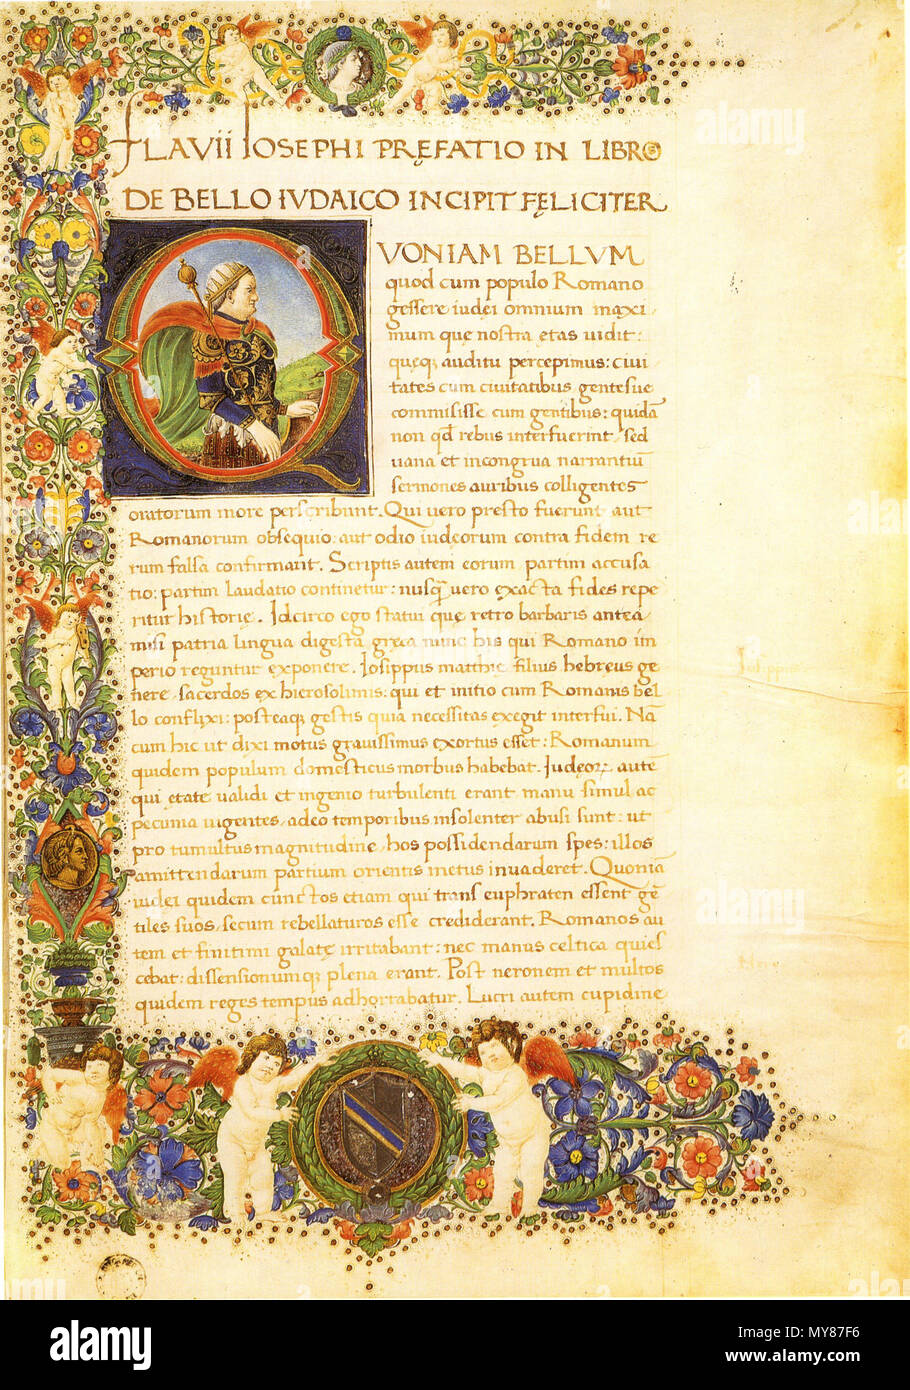 FLAVII IOSEPHI PRĘFATIO IN LIBRO
DE BELLO IVDAICO INCIPIT FĘLICITER
QVONIAM BELLVM
quod cum populo Romano
gessere iudei omnium maxi
mum que nostra etas uidit:
queq; auditu percepimus: ciui
tates cum ciuitatibus gentesue
commisisse cum gentibus: quidā
non qđ rebus interfuerint, sed
uana et incongrua narrantiū
sermones auribus colligentes
oratorum more perscribunt. Qui uero presto fuerunt aut
Romanorum obsequio: aut odio iudęorum contra fidem re
rum falsa confirmant. Scriptis autem eorum partim accusa
tio: partim laudatio continetur: nusq̄ uero exacta fides repe
ritur historie. Idcirco ego statui que retro barbaris antea
misi patria lingua digesta gręca nunc his qui Romano im
perio reguntur exponere. Iosippus matthię filius hebręus ge
nere, sacerdos ex hierosolimis: qui et initio cum Romanis bel
lo conflixi: posteaq; gestis quia necessitas exegit interfui. Nā
cum hic ut dixi motus grauissimus exortus esset: Romanum
quidem populum domesticus morbus habebat. Iudęoꝝ autē
qui etate ualidi et ingenio turbulenti erant manu simul ac
pecunia uigentes, adeo temporibus insolenter abusi sunt: ut
pro tumultus magnitudine, hos possidendarum spes: illos
amittendarum partium orientis metus inuaderet. Quoniā
iudei quidem cunctos etiam qui trans euphraten essent gē
tiles suos, secum rebellaturos esse crediderant. Romanos au
tem et finitimi galatę irritabant: nec manus celtica quies
cebat: dissensionumq; plena erant. Post neronem et multos
quidem reges tempus adhortabatur. Lucri autem cupidine
alamy
alamy
www.alamy.com
Image ID: MY87F6